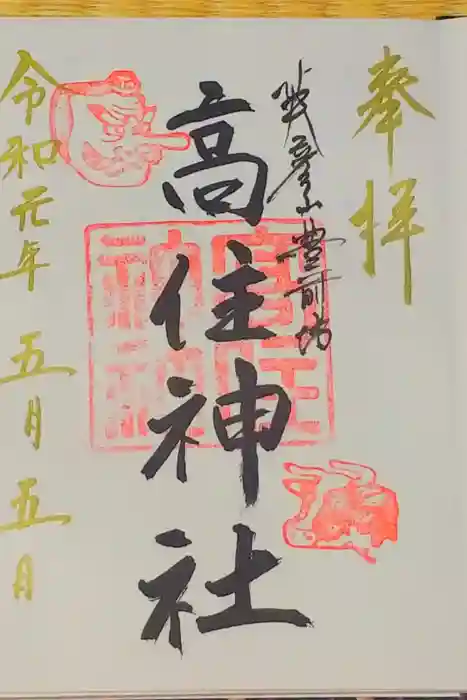 奉拝
英彦山豊前坊
高住神社
令和元年 五月五日